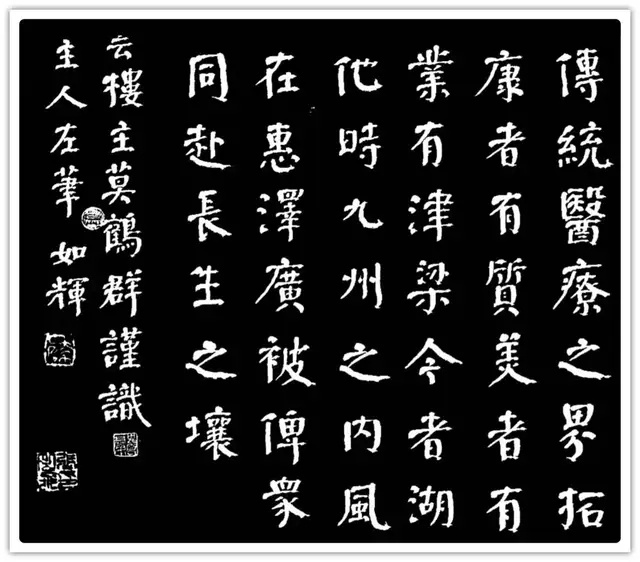 傳統醫療之界拓
康者有質美者有
業有津梁今者湖
他時九州之内風
在惠澤廣被俾衆
同赴長生之壤
云樓主莫鶴群謹識
主人左筆如輝